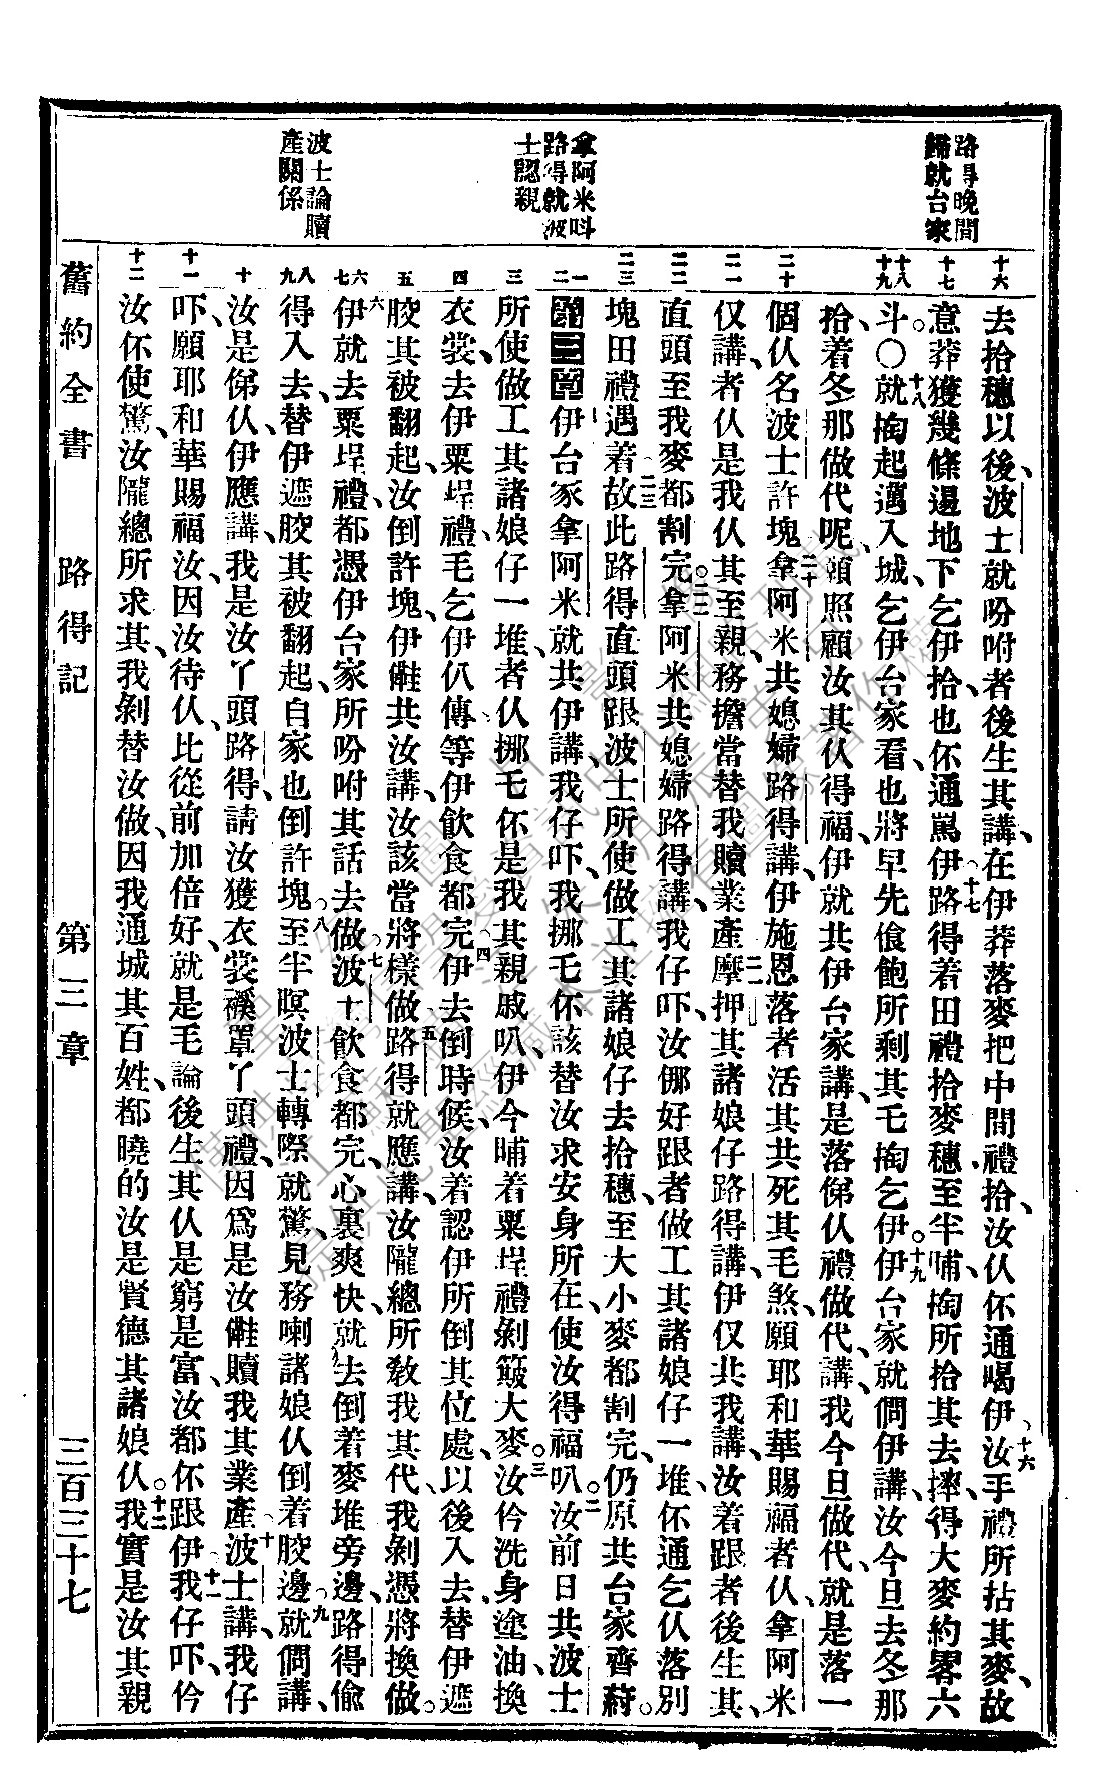 路得晚間
歸就台家
拿阿米呌
路得就波
士認親
波士論贖
產關係
十六
十七
十八
十九
二十
二一
二二
二三
一
二
三
四
五
六
七
八
九
十
十一
十二
去拾穗以後、波士就吩咐者後生其講、在伊莽落麥把中間禮拾、汝仈伓通喝伊、十六汝手禮所拈其麥、故
意莽獲幾條遏地下、乞伊拾、也伓通罵伊、十七路得着田禮拾麥穗至半晡、掏所拾其去摔、得大麥約畧六
斗。〇十八就掏起邁入城、乞伊台家看、也將早先飡飽所剩其乇掏乞伊。十九伊台家就問伊講、汝今旦去冬那
拾、着冬那做代呢、願照顧汝其仈得福、伊就共伊台家講、是落俤仈禮做代、講、我今旦做代、就是落一
個仈名波士許塊。二十拿阿米共媳婦路得講、伊施恩落者活其共死其毛煞、願耶和華賜福者仈、拿阿米
仅講、者仈是我仈其至親、務擔當替我贖業產、二一摩押其諸娘仔路得講、伊仅共我講、汝着跟者後生其、
直頭至我麥都割完。二二拿阿米共媳婦路得講、我仔吓、汝㑚好跟者做工其諸娘仔一堆、伓通乞仈落別
塊田禮遇着。二三故此路得直頭跟波士所使做工其諸娘仔去拾穗、至大小麥都割完、仍原共台家齊蔚。
第三章 伊台家拿阿米就共伊講、我仔吓、我挪乇伓該替汝求安身所在、使汝得福叭。二汝前日共波士
所使做工其諸娘仔一堆、者仈挪乇伓是我其親戚叭、伊今晡着粟埕禮剝簸大麥。三汝仱洗身塗油、換
衣裳、去伊粟埕禮、毛乞伊仈傳、等伊飲食都完、四伊去倒時候、汝着認伊所倒其位處、以後入去、替伊遮
骹其被翻起、汝倒許塊、伊𣍐共汝講、汝該當將樣做。五路得就應講、汝隴總所教我其代、我剝憑將換做。
六伊就去粟埕禮、都憑伊台家所吩咐其話去做。七波士飲食都完、心裏爽快、就去倒着麥堆旁邊、路得偷
得入去、替伊遮骹其被翻起、自家也倒許塊。八至半暝、波士轉際、就驚、見務喇諸娘仈倒着骹邊。九就問講、
汝是俤仈、伊應講、我是汝丫頭路得、請汝獲衣裳襁罩丫頭禮、因爲是汝𣍐贖我其業產。十波士講、我仔
吓、願耶和華賜福汝、因汝待仈、比從前加倍好、就是毛論後生其仈是窮是富、汝都伓跟伊。十一我仔吓、仱
汝伓使驚、汝隴總所求其、我剝替汝做、因我通城其百姓、都曉的汝是賢德其諸娘仈。十二我實是汝其親
舊約全書　路得記　第三章　三百三十七